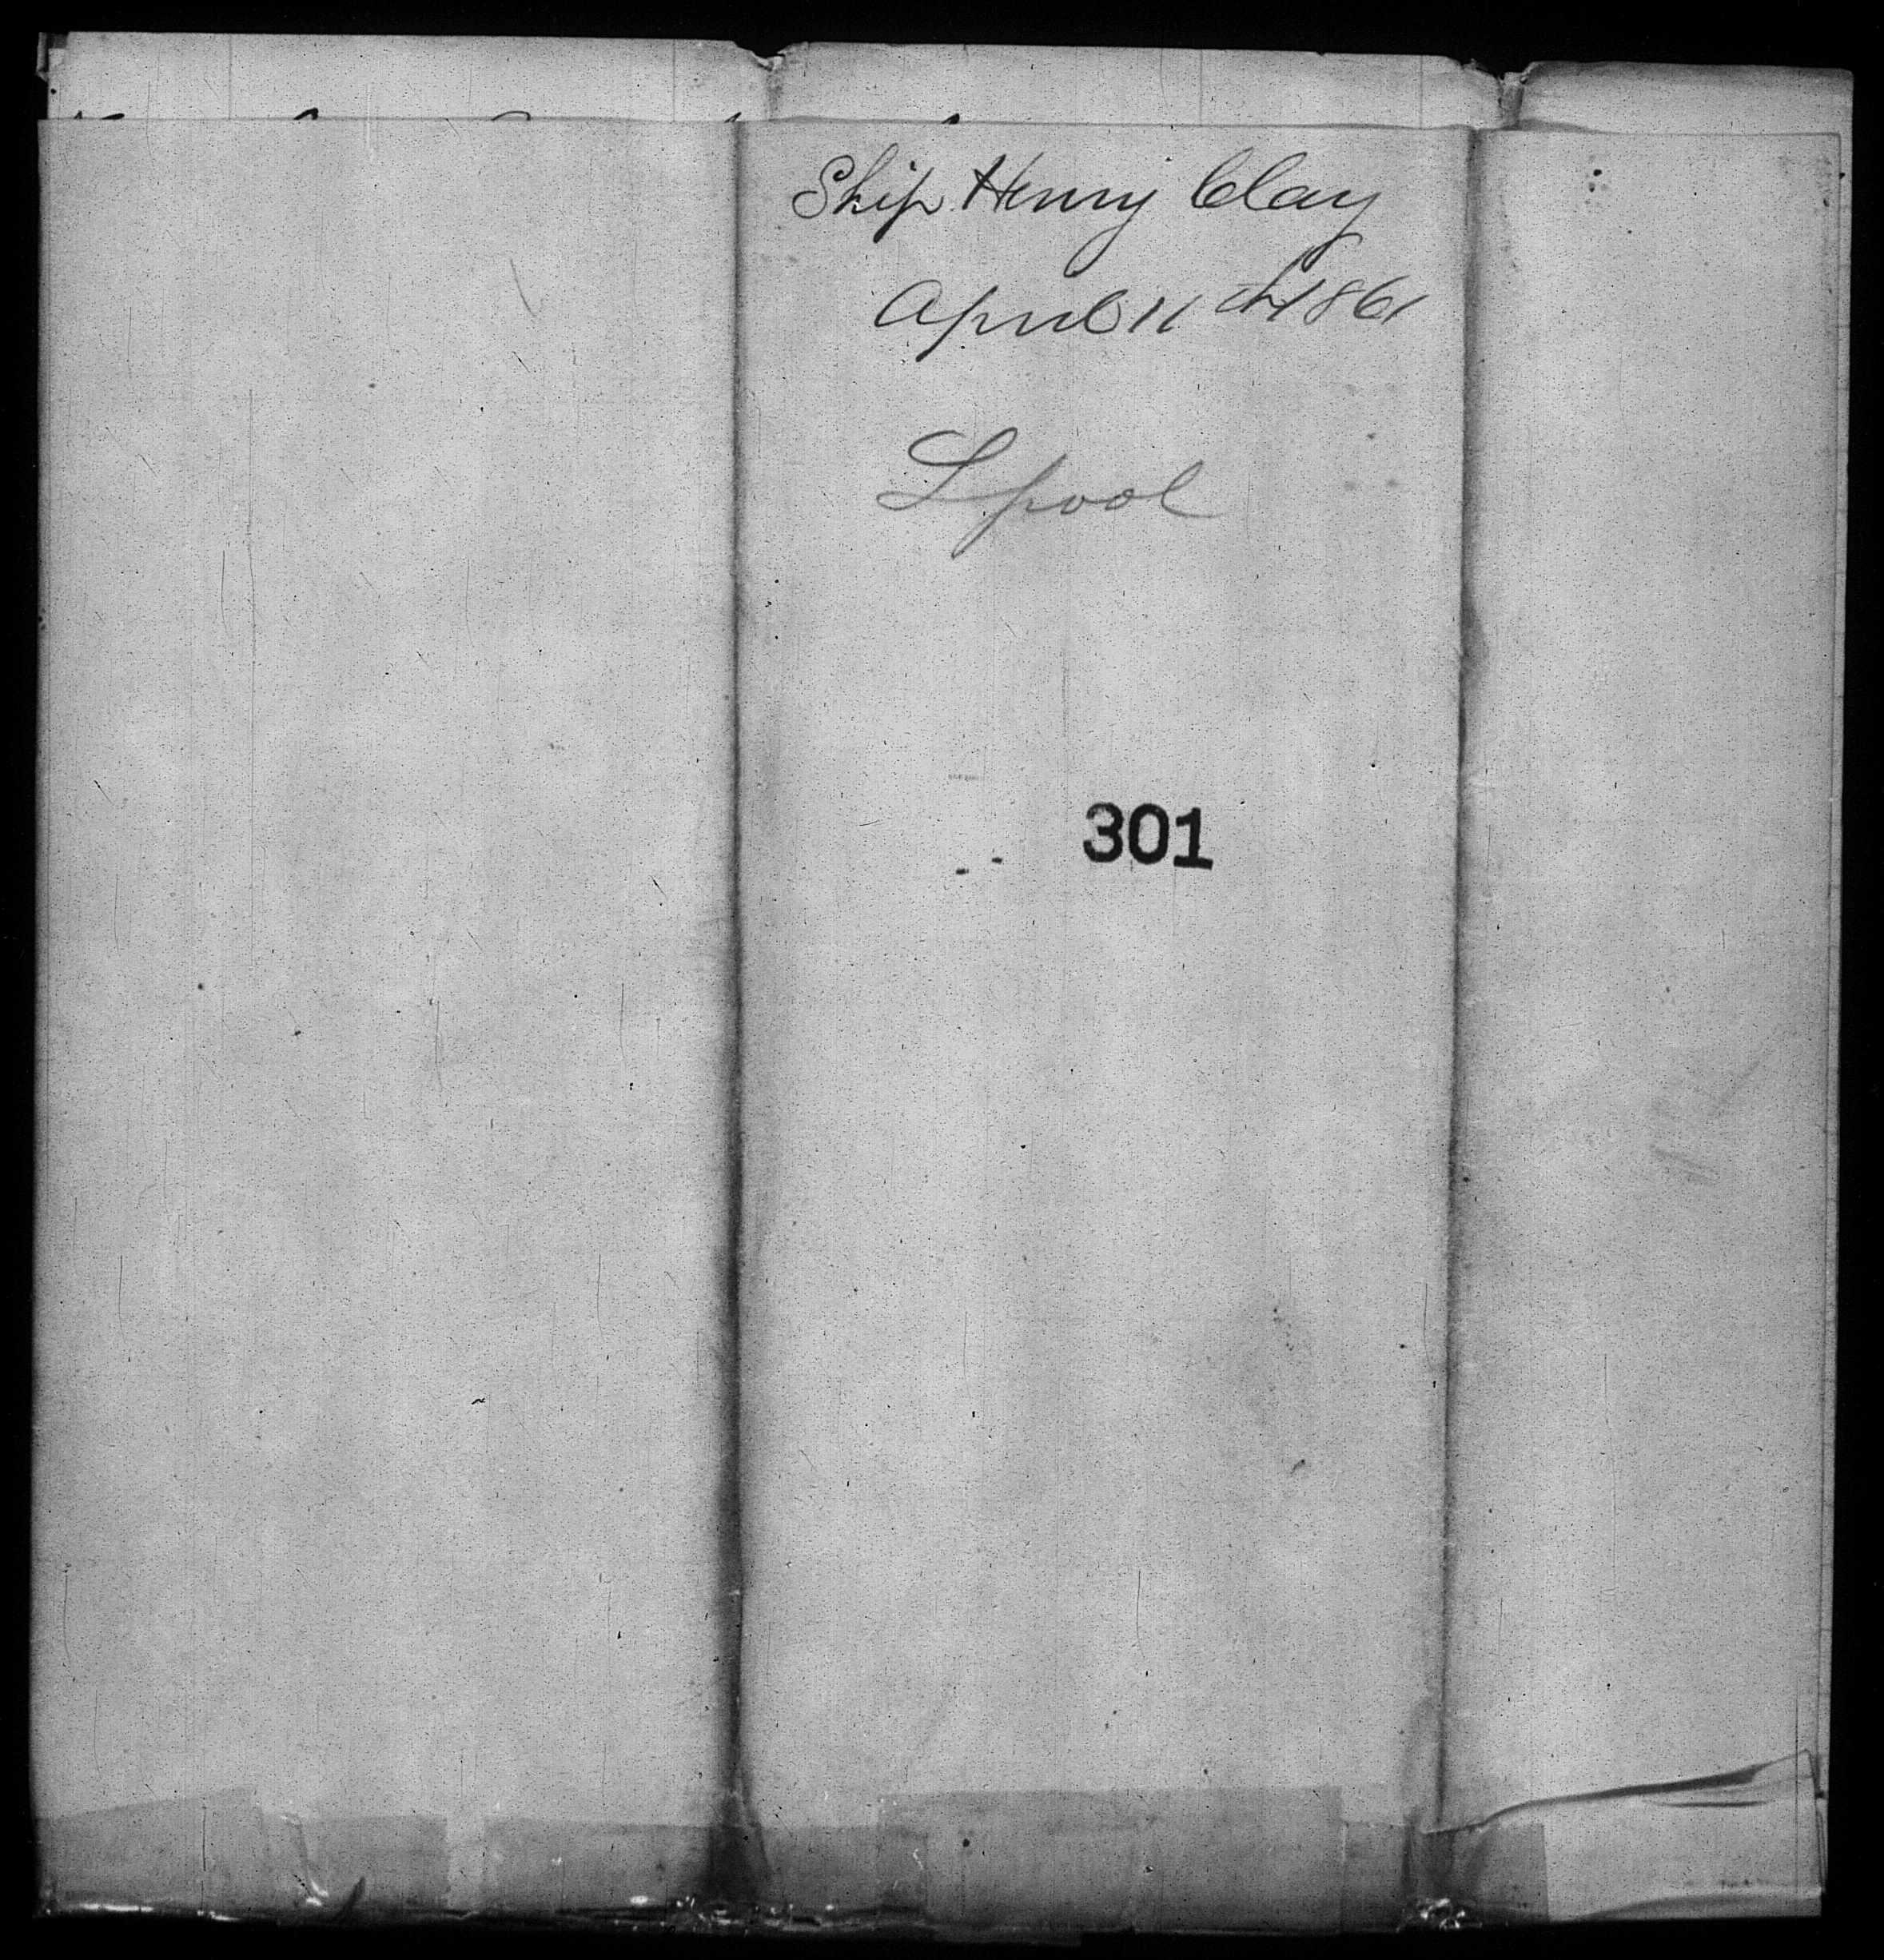 Ship Henry Clay
April 11th 1861
Lpool
301